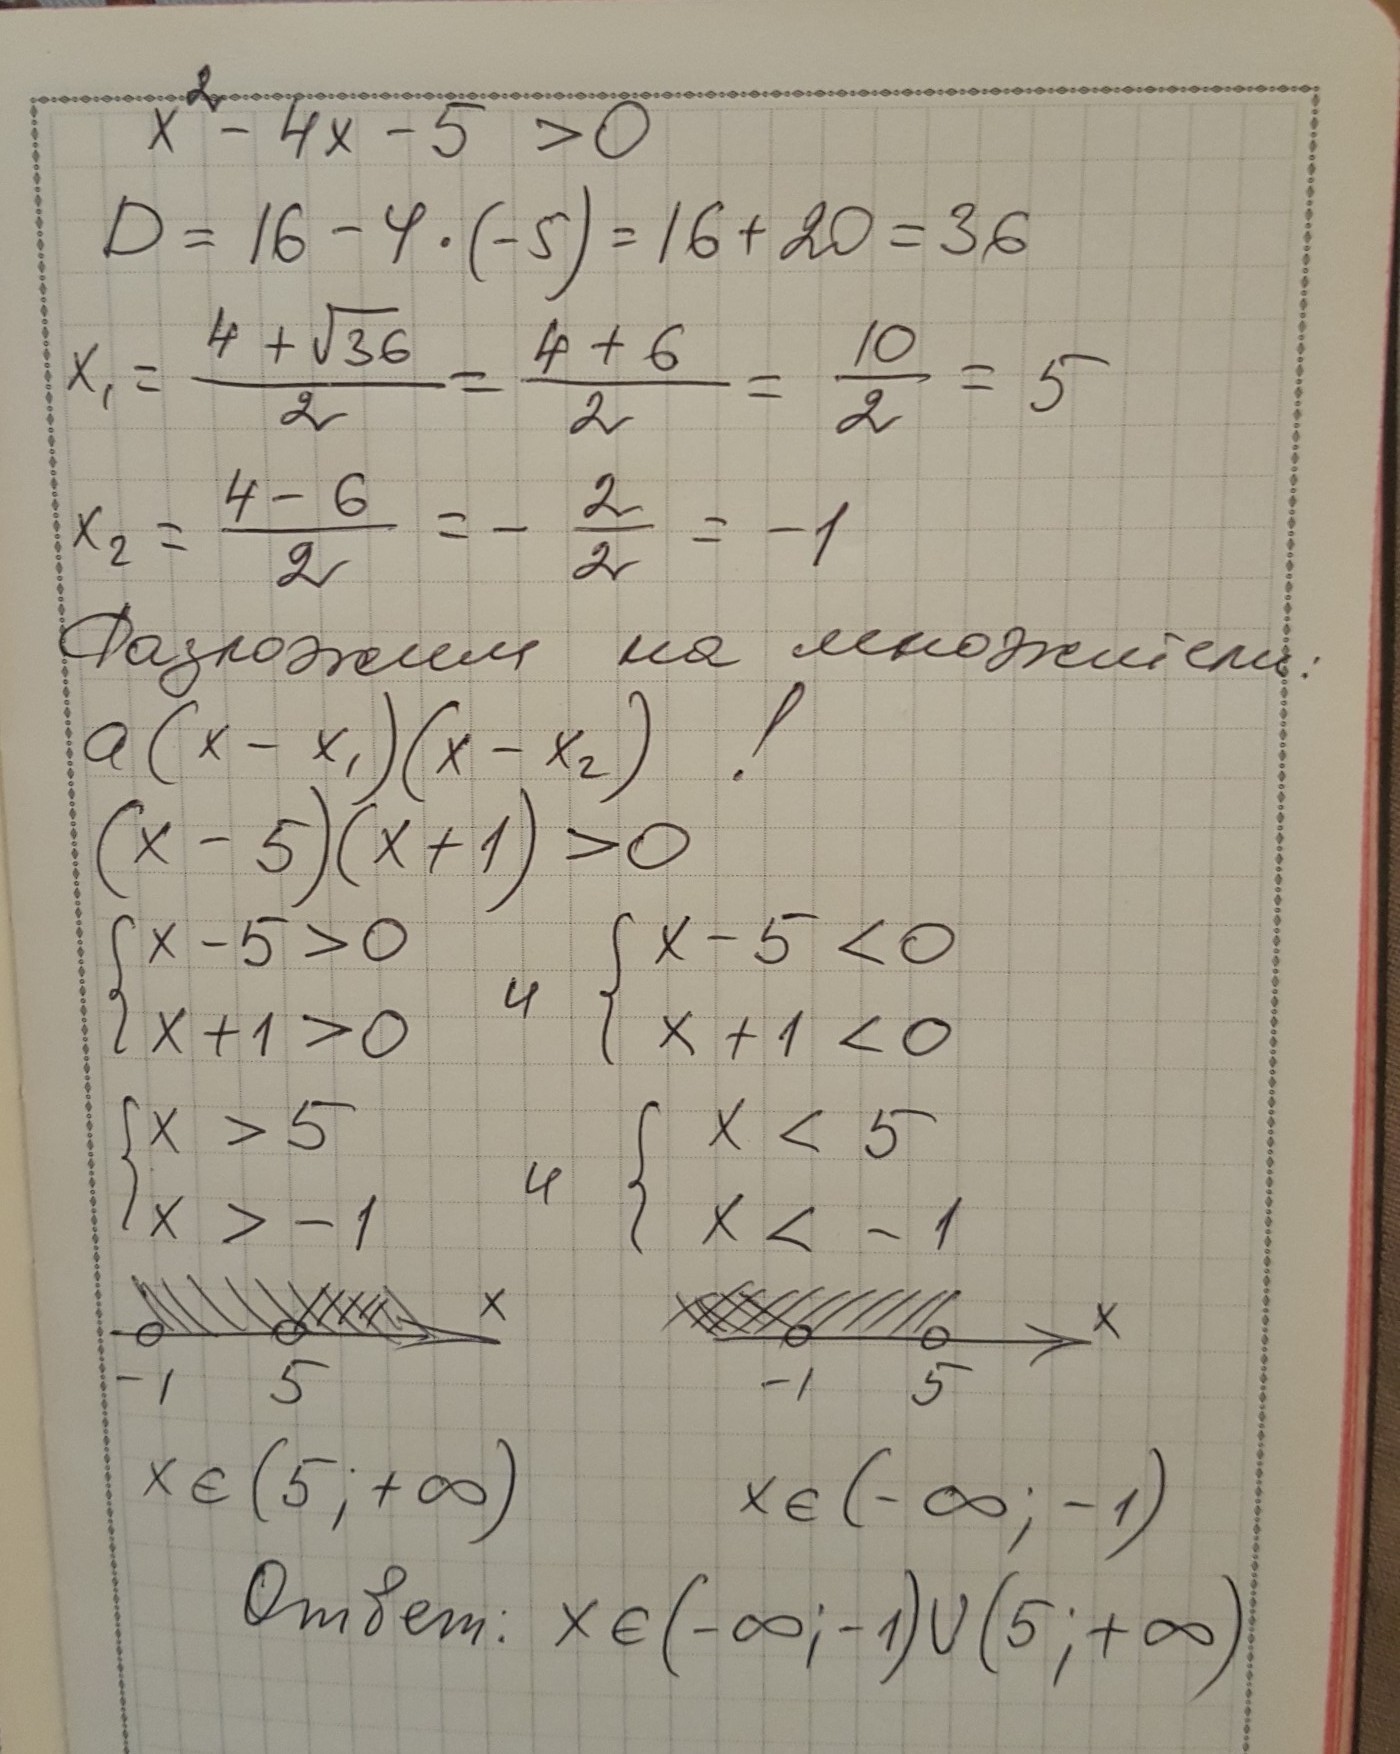 x² - 4x - 5 > 0
D = 16 - 4 · (-5) = 16 + 20 = 36
x₁ = (4 + √36)/2 = (4 + 6)/2 = 10/2 = 5
x₂ = (4 - 6)/2 = - 2/2 = -1
Разложим на множители:
a(x - x₁)(x - x₂) !
(x - 5)(x + 1) > 0
{ x - 5 > 0 { x - 5 < 0
и
{ x + 1 > 0 { x + 1 < 0
{ x > 5 { x < 5
и
{ x > -1 { x < -1
x x
-1 5 -1 5
x ∈ (5; +∞) x ∈ (-∞; -1)
Ответ: x ∈ (-∞; -1) ∪ (5; +∞)